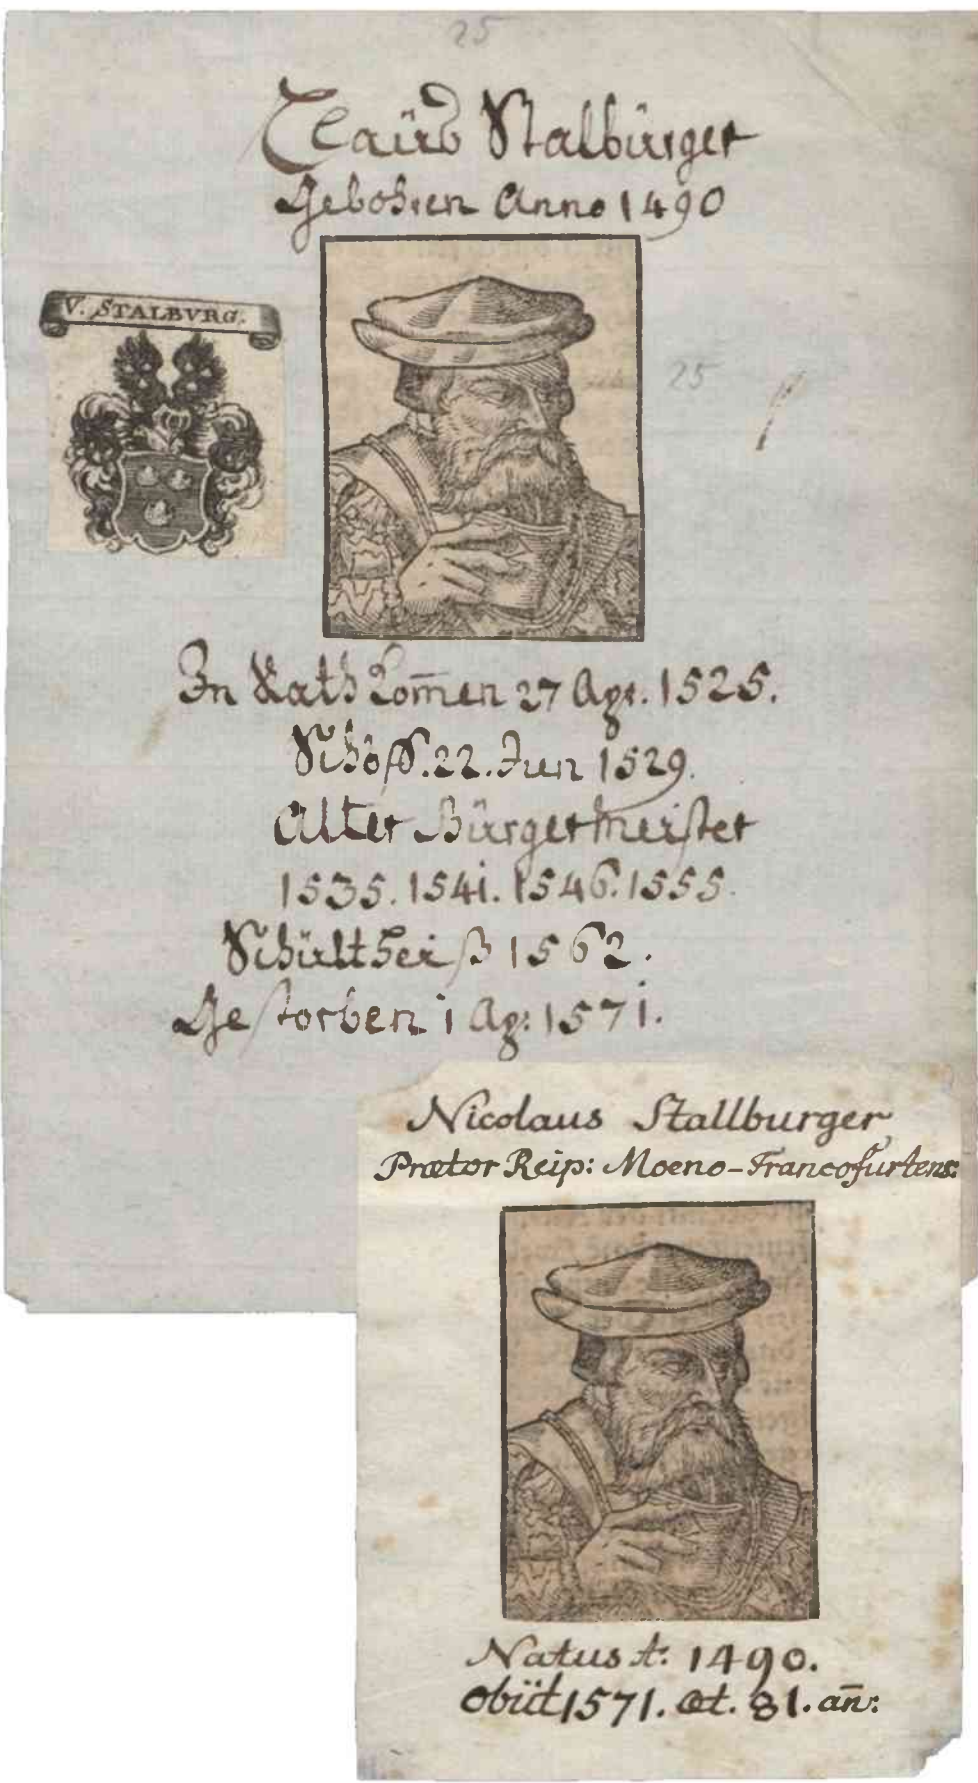 25
Claus Stalburger
Gebohren Anno 1490
V. STALBVRG.
25
In Rath kom̅en 27 Apr. 1525.
Schöff. 22. Jun 1529.
Älter Bürgermeister
1535. 1541. 1546. 1555.
Schultheiß 1562.
Gestorben 1 Ap: 1571.
Nicolaus Stallburger
Prætor Reip: Moeno-Francofurtens:
Natus A: 1490.
obiit 1571. æt. 81. an̅: